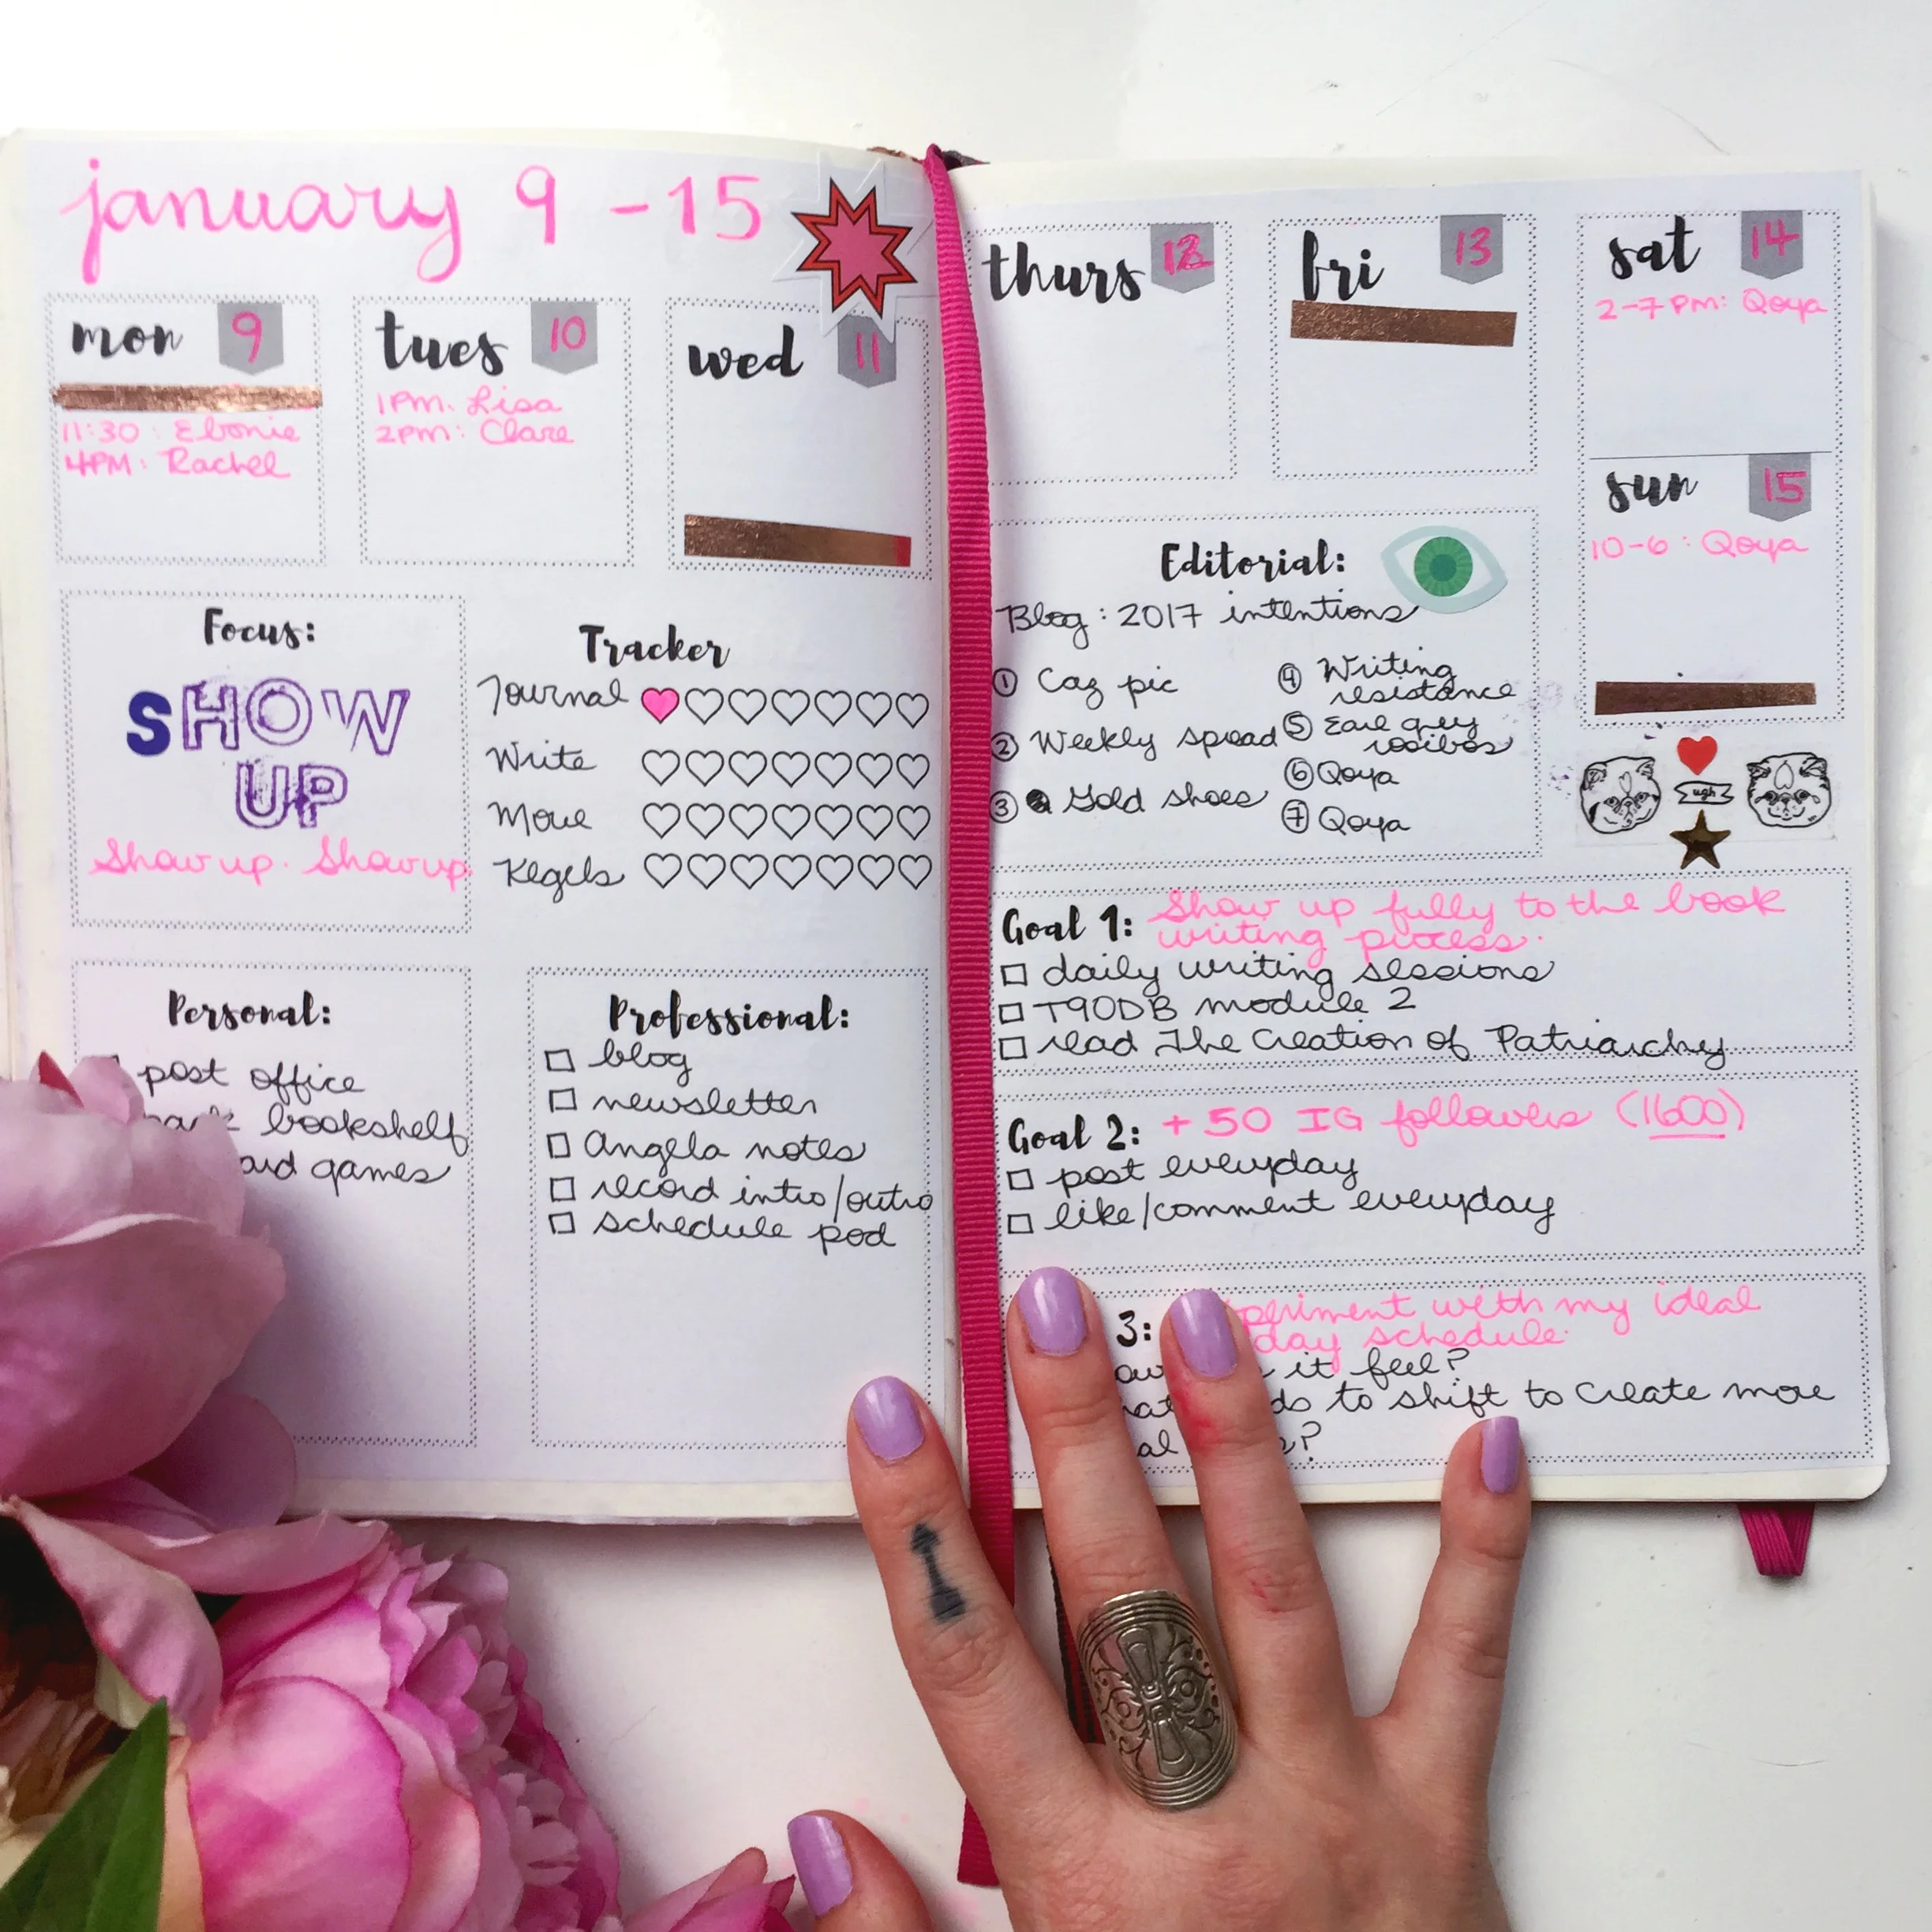 january 9 - 15
mon 9
11:30 : Ebonie
4PM : Rachel
tues 10
1PM. Lisa
2PM : Clare
wed 11
Focus:
SHOW
UP
Show up. Show up.
Tracker
Journal
Write
Move
Kegels
Personal:
post office
bookshelf
games
Professional:
blog
newsletter
Angela notes
record intro/outro
schedule pod
thurs 12
fri 13
sat 14
2-7 PM: Qoya
sun 15
10-6 : Qoya
Editorial:
Blog : 2017 intentions
① Caz pic
② Weekly spread
③ Gold shoes
④ Writing
resistance
⑤ Earl grey
rooibos
⑥ Qoya
⑦ Qoya
ugh
Goal 1: Show up fully to the book
writing process.
daily writing sessions
T90DB module 2
read The Creation of Patriarchy
Goal 2: + 50 IG followers (1600)
post everyday
like/comment everyday
3: with my ideal
day schedule.
it feel?
to shift to create more